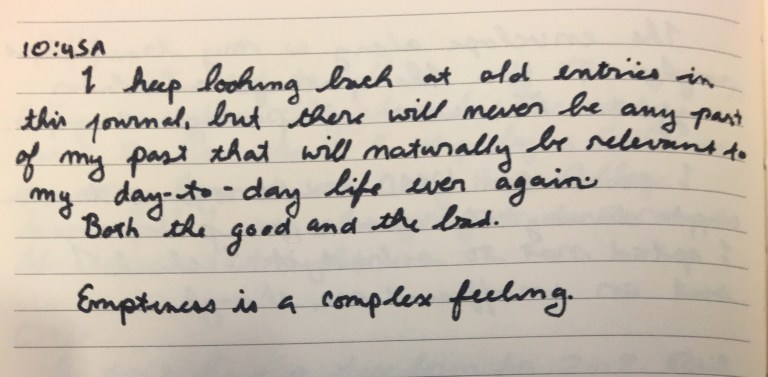 10:45A
I keep looking back at old entries in
this journal, but there will never be any part
of my past that will naturally be relevant to
my day-to-day life ever again.
Both the good and the bad.
Emptiness is a complex feeling.